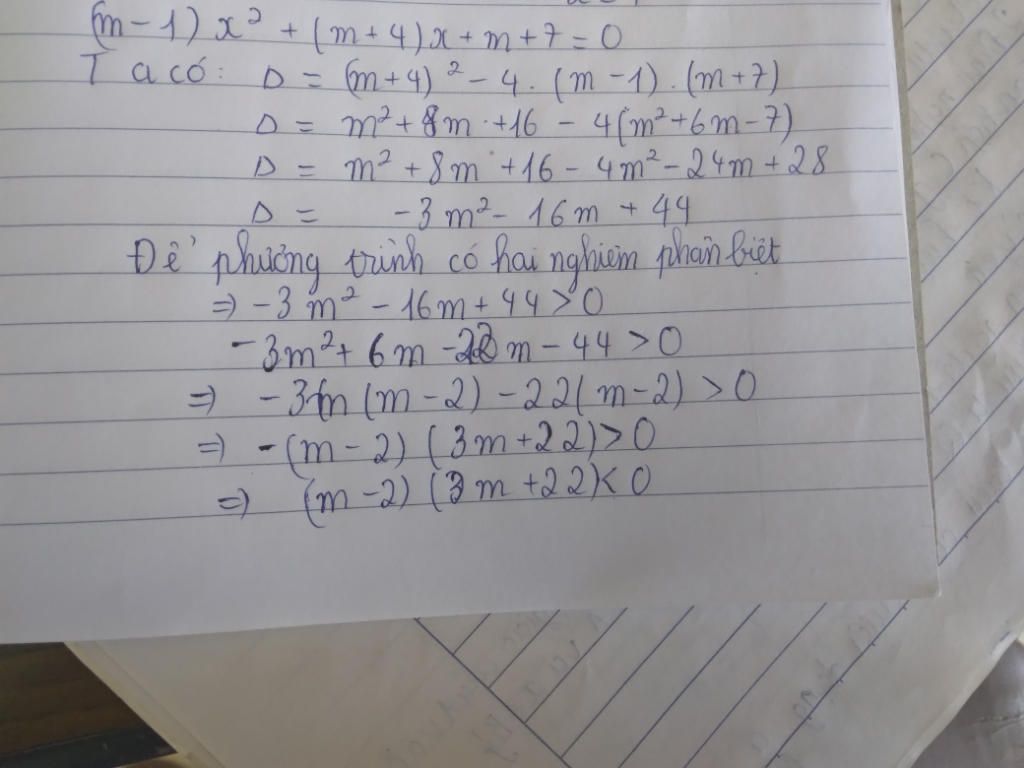 (m-1)x² + (m+4)x + m + 7 = 0
Ta có: Δ = (m+4)² - 4.(m-1).(m+7)
Δ = m² + 8m + 16 - 4(m² + 6m - 7)
Δ = m² + 8m + 16 - 4m² - 24m + 28
Δ = -3m² - 16m + 44
Để phương trình có hai nghiệm phân biệt
⇒ -3m² - 16m + 44 > 0
-3m² + 6m - 22m - 44 > 0
⇒ -3m(m-2) - 22(m-2) > 0
⇒ -(m-2)(3m+22) > 0
⇒ (m-2)(3m+22) < 0